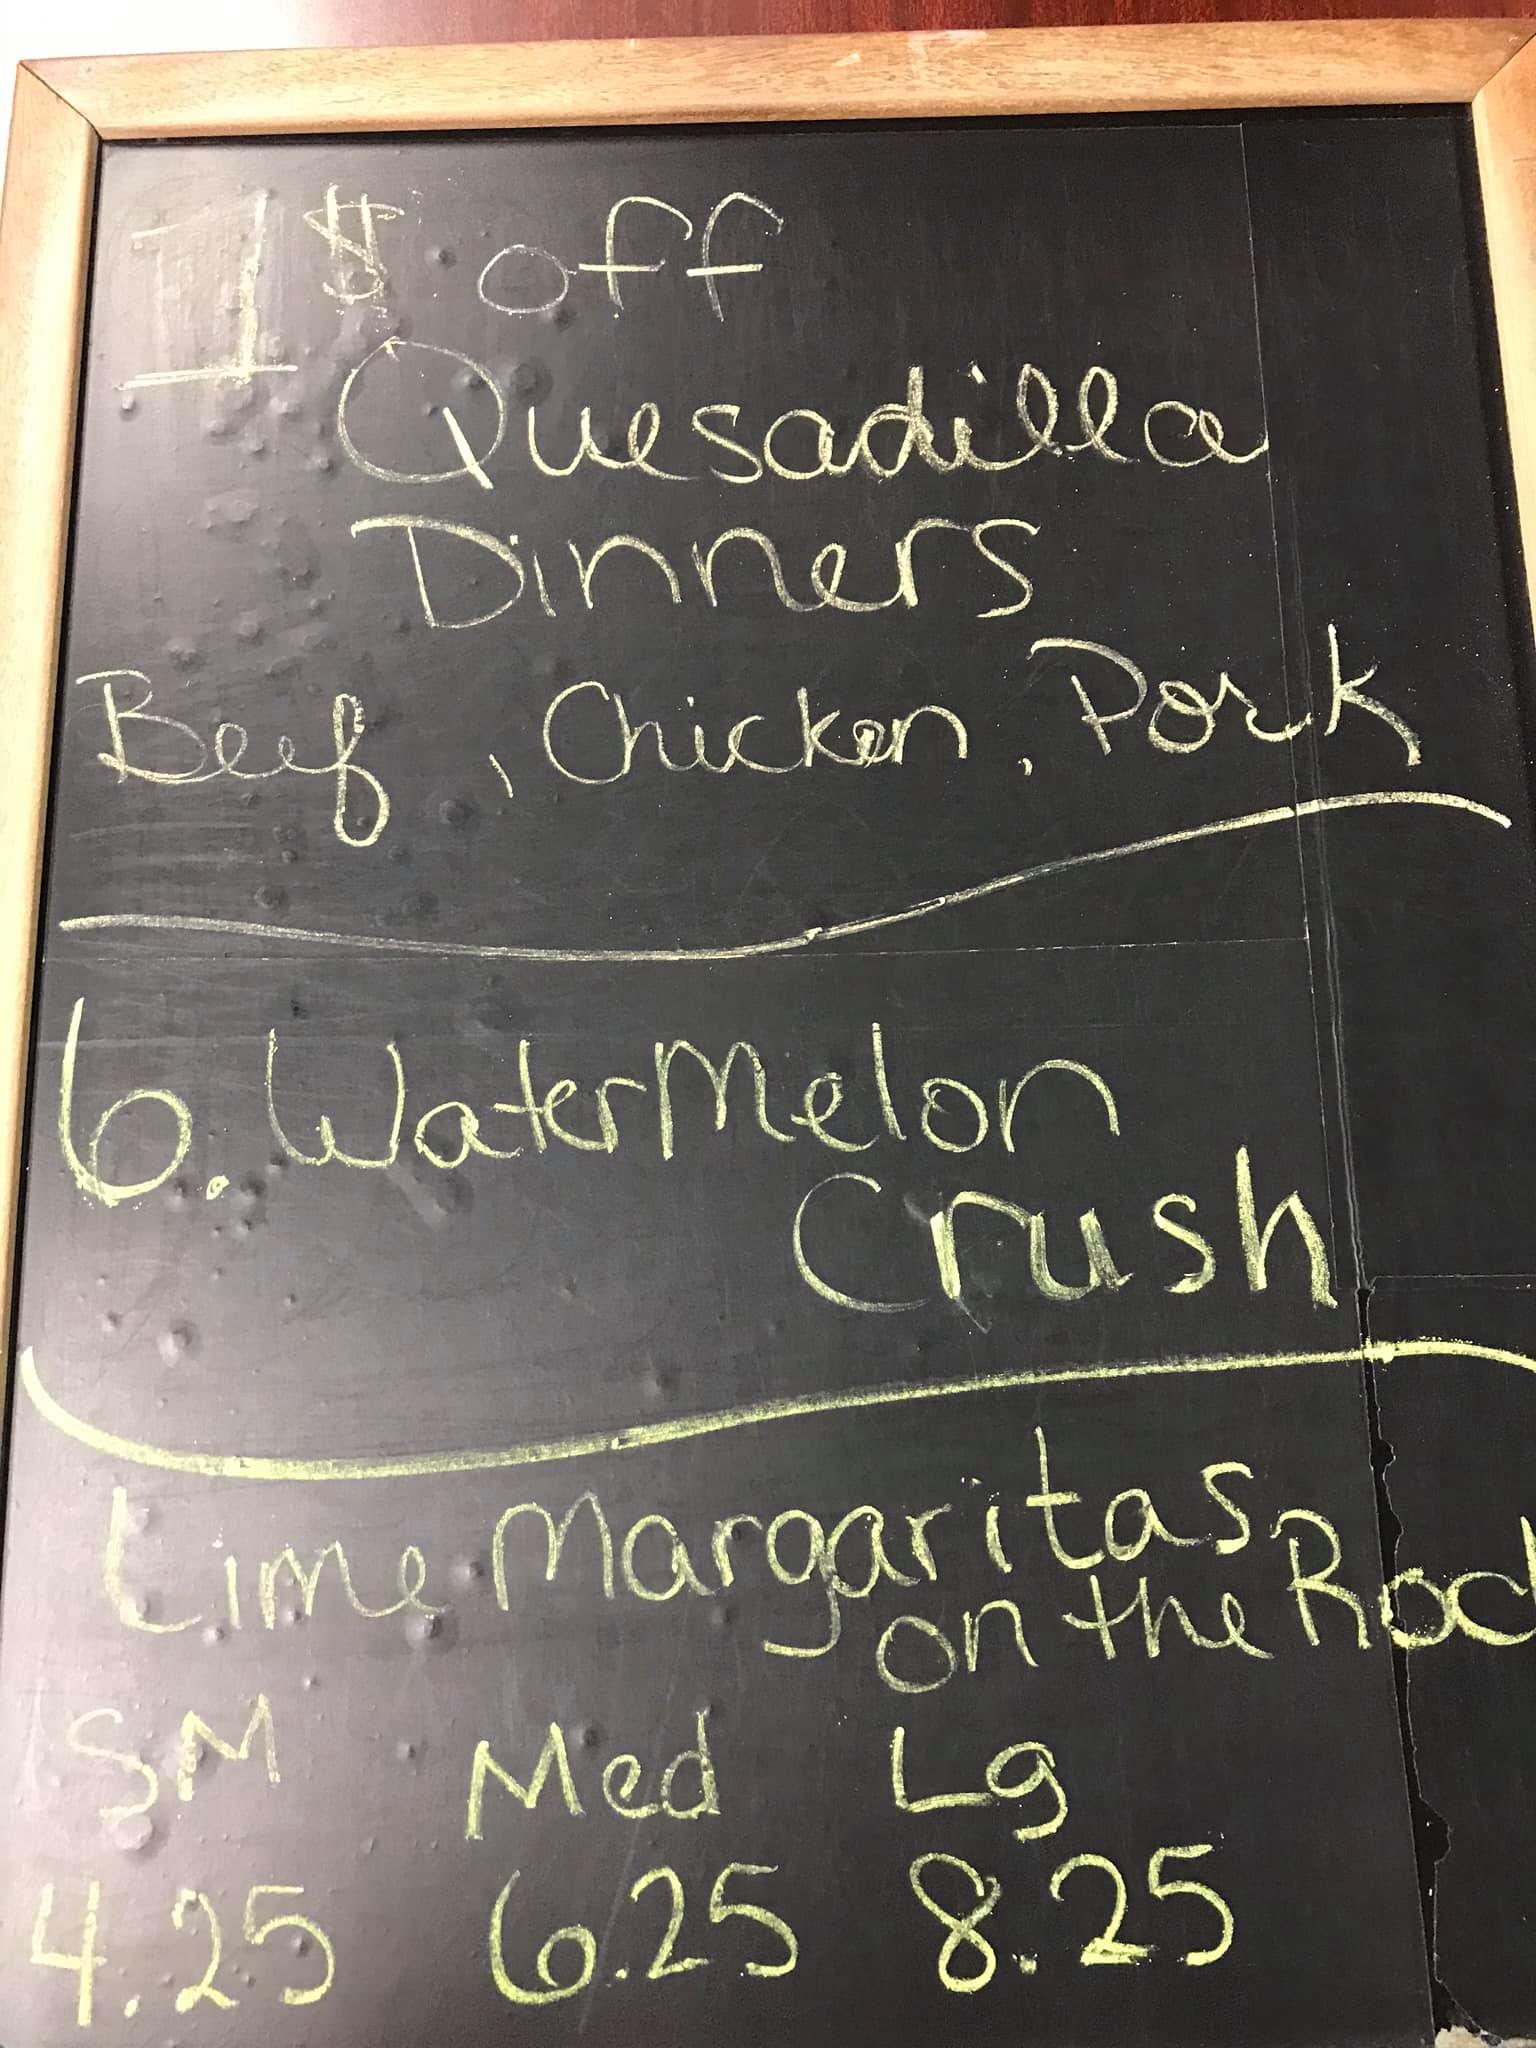 1$ off
Quesadilla
Dinners
Beef, Chicken, Pork
6. Watermelon
Crush
Lime Margaritas
on the Rock
SM Med Lg
4.25 6.25 8.25